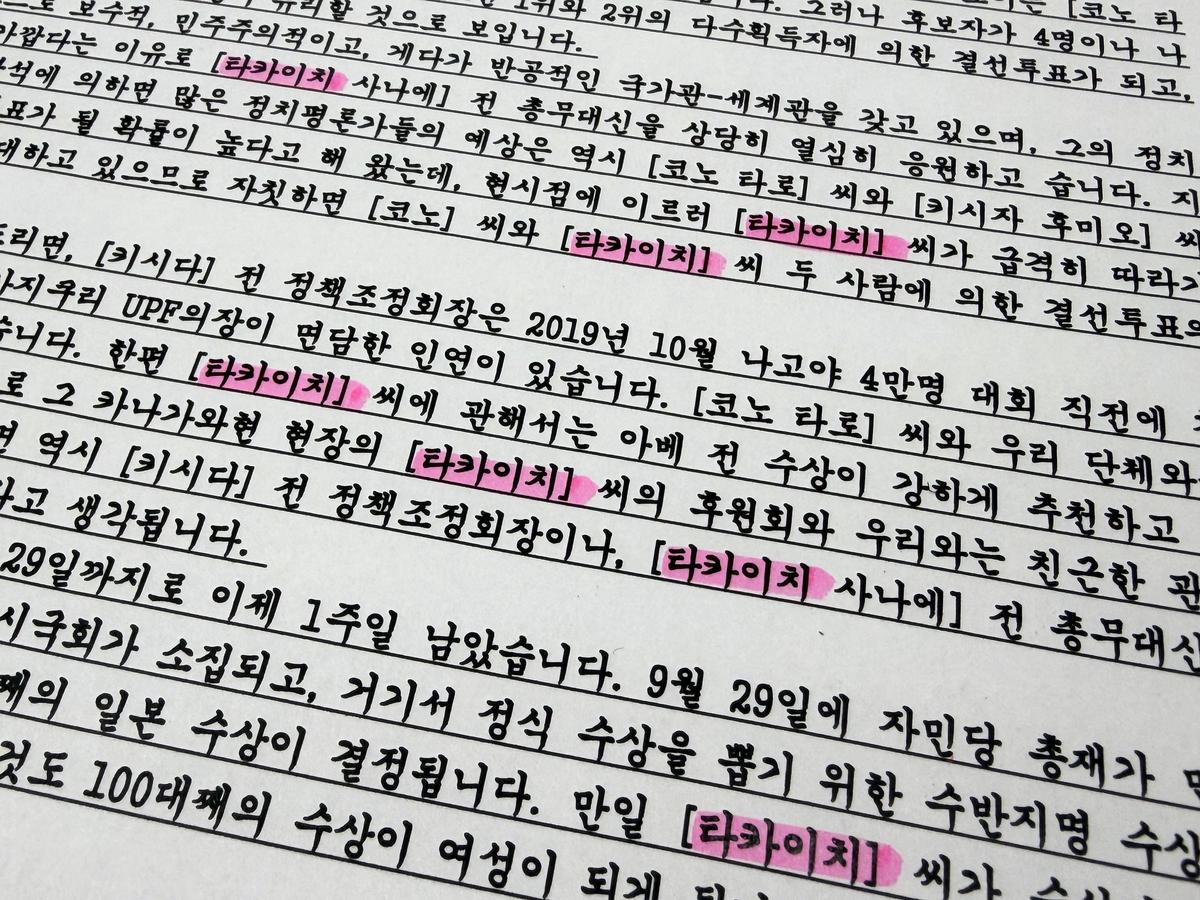 [코노 타
그러나 후보자가 4명이나 나
1위와 2위의 다수획득자에 의한 결선투표가 되고,
유리할 것으로 보입니다.
로 보수적, 민주주의적이고, 게다가 반공적인 국가관-세계관을 갖고 있으며, 그의 정치
아깝다는 이유로 [타카이치 사나에] 전 총무대신을 상당히 열심히 응원하고 습니다. 지
석에 의하면 많은 정치평론가들의 예상은 역시 [코노 타로] 씨와 [키시자 후미오] 씨
표가 될 확률이 높다고 해 왔는데, 현시점에 이르러 [타카이치] 씨가 급격히 따라
대하고 있으므로 자칫하면 [코노] 씨와 [타카이치] 씨 두 사람에 의한 결선투표의
드리면, [키시다] 전 정책조정회장은 2019년 10월 나고야 4만명 대회 직전에
가지쿠리 UPF의장이 면담한 인연이 있습니다. [코노 타로] 씨와 우리 단체와
습니다. 한편 [타카이치] 씨에 관해서는 아베 전 수상이 강하게 추천하고
로 그 카나가와현 현장의 [타카이치] 씨의 후원회와 우리와는 친근한 관
면 역시 [키시다] 전 정책조정회장이나, [타카이치 사나에] 전 총무대신
다고 생각됩니다.
29일까지로 이제 1주일 남았습니다. 9월 29일에 자민당 총재가
시국회가 소집되고, 거기서 정식 수상을 뽑기 위한 수반지명 수상
째의 일본 수상이 결정됩니다. 만일 [타카이치] 씨가 수상
것도 100대째의 수상이 여성이 되게